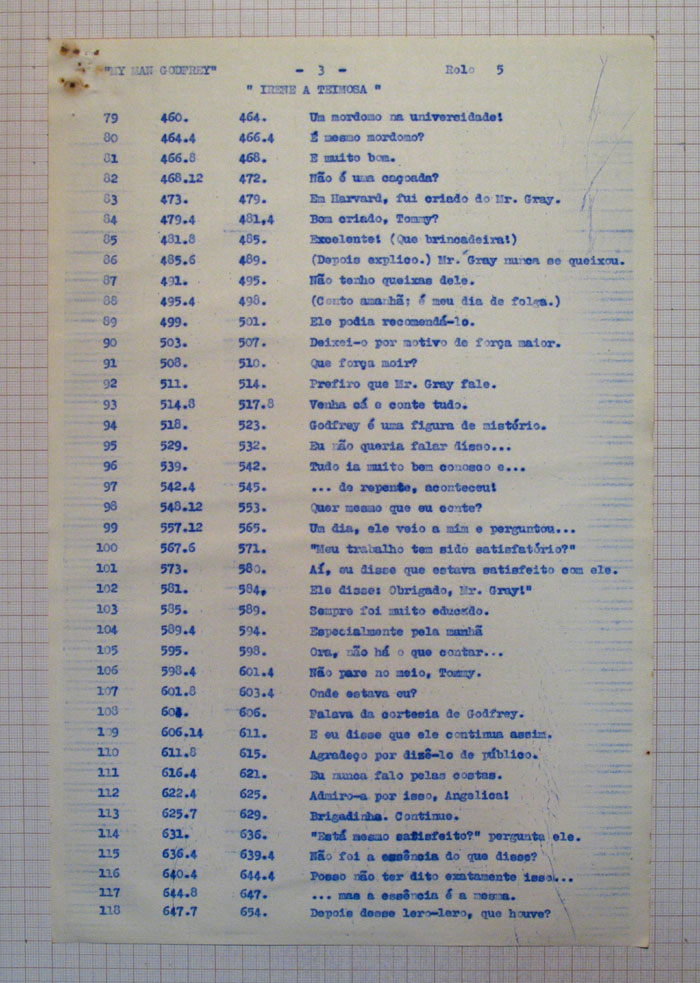 "MY MAN GODFREY" - 3 - Rolo 5
" IRENE A TEIMOSA "
79 460. 464. Um mordomo na universidade!
80 464.4 466.4 É mesmo mordomo?
81 466.8 468. E muito bom.
82 468.12 472. Não é uma caçoada?
83 473. 479. Em Harvard, fui criado do Mr. Gray.
84 479.4 481,4 Bom criado, Tommy?
85 481.8 485. Excelente! (Que brincadeira!)
86 485.6 489. (Depois explico.) Mr. Gray nunca se queixou.
87 491. 495. Não tenho queixas dele.
88 495.4 498. (Conto amanhã; é meu dia de folga.)
89 499. 501. Ele podia recomendá-lo.
90 503. 507. Deixei-o por motivo de força maior.
91 508. 510. Que força moir?
92 511. 514. Prefiro que Mr. Gray fale.
93 514.8 517.8 Venha cá e conte tudo.
94 518. 523. Godfrey é uma figura de mistério.
95 529. 532. Eu não queria falar disso...
96 539. 542. Tudo ia muito bem conosco e...
97 542.4 545. ... de repente, aconteceu!
98 548.12 553. Quer mesmo que eu conte?
99 557.12 565. Um dia, ele veio a mim e perguntou...
100 567.6 571. "Meu trabalho tem sido satisfatório?"
101 573. 580. Aí, eu disse que estava satisfeito com ele.
102 581. 584, Ele disse: Obrigado, Mr. Gray!"
103 585. 589. Sempre foi muito educado.
104 589.4 594. Especialmente pela manhã
105 595. 598. Ora, não há o que contar...
106 598.4 601.4 Não pare no meio, Tommy.
107 601.8 603.4 Onde estava eu?
108 604. 606. Falava da cortesia de Godfrey.
109 606.14 611. E eu disse que ele continua assim.
110 611.8 615. Agradeço por dizê-lo de público.
111 616.4 621. Eu nunca falo pelas costas.
112 622.4 625. Admiro-a por isso, Angelica!
113 625.7 629. Brigadinha. Continue.
114 631. 636. "Está mesmo satisfeito?" pergunta ele.
115 636.4 639.4 Não foi a essência do que disse?
116 640.4 644.4 Posso não ter dito exatamente isso...
117 644.8 647. ... mas a essência é a mesma.
118 647.7 654. Depois desse lero-lero, que houve?